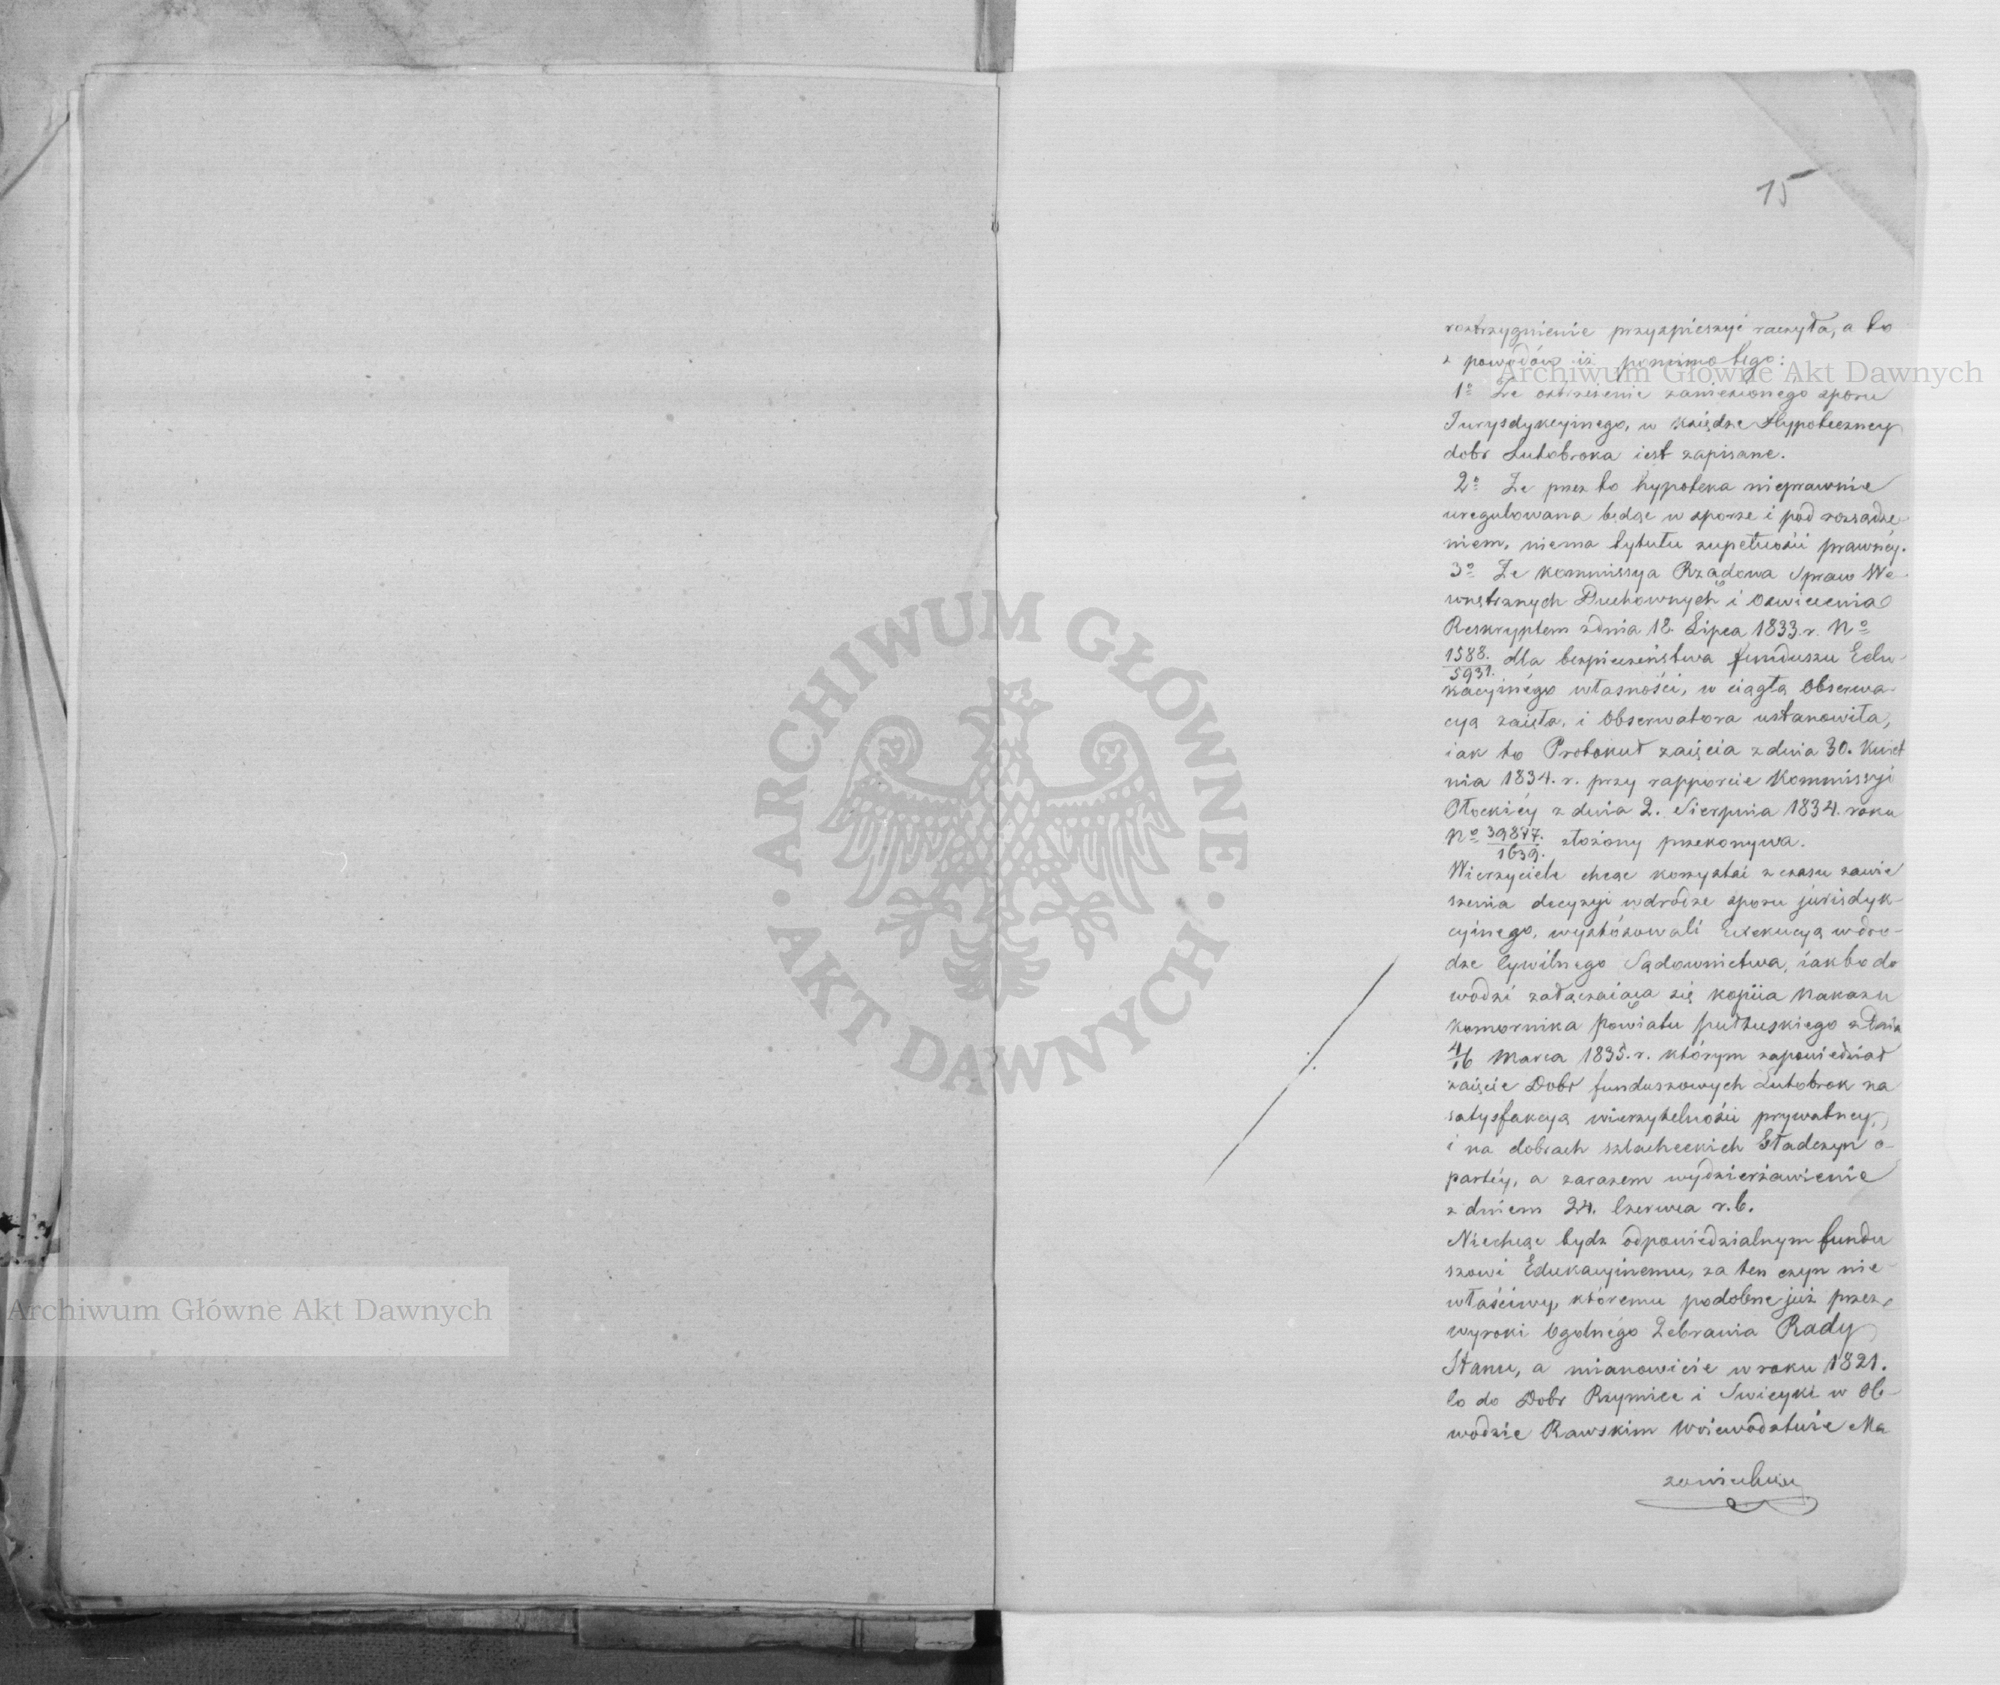 15
rozstrzygnienie przyspieszyć raczyła, a to
z powodów iż pomimo tego:
1º Że ostrzeżenie zaniesionego sporu
Jurysdykcyinego, w księdze Hypoteczney
dobr Lutobroka iest zapisane.
2º Że przez to hypoteka nieprawnie
uregulowana będąc w sporze i pod rozsądze-
niem, niema tytułu zupełności prawnéy.
3º Że Kommissya Rządowa Spraw We-
wnętrznych Duchownych i Oświecenia
Reskryptem z dnia 18. Lipca 1833. r. Nº
1588./5931. dla bezpieczeństwa funduszu Edu-
kacyinégo własności, w ciągłą Obserwa-
cyą zaięła, i Obserwatora ustanowiła,
iak to Protokuł zaięcia z dnia 30. Kwiet
nia 1834. r. przy rapporcie Kommissyi
Płockiéy z dnia 2. Sierpnia 1834. roku
Nº 39877./1639. złożony przekonywa.
Wierzyciele chcąc korzystać z czasu zawie
szenia decyzyi w drodze sporu jurisdyk-
cyinego, wystósowali Exekucyą w dro-
dze Cywilnego Sądownictwa, iak to do
wodzi załączaiąca się kopiia Nakazu
Komornika Powiatu Pułtuskiego z dnia
4/16 Marca 1835. r. którym zapowiedział
zaięcie Dobr funduszowych Lutobrok na
satysfakcyą wierzytelności prywatney,
i na dobrach szlacheckich Gładczyn o-
partéy, a zarazem wydzierżawienie
z dniem 24. Czerwca r. b.
Niechcąc bydz odpowiedzialnym fundu
szowi Edukacyinemu, za ten czyn nie-
właściwy, któremu podobne już przez
wyroki Ogolnégo Zebrania Rady
Stanu, a mianowicie w roku 1821.
co do Dobr Rzymiec i Swięyki w Ob-
wodzie Rawskim Woiewództwie Ma
zowieckim
ARCHIWUM GŁÓWNE
AKT DAWNYCH
Archiwum Główne Akt Dawnych
Archiwum Główne Akt Dawnych